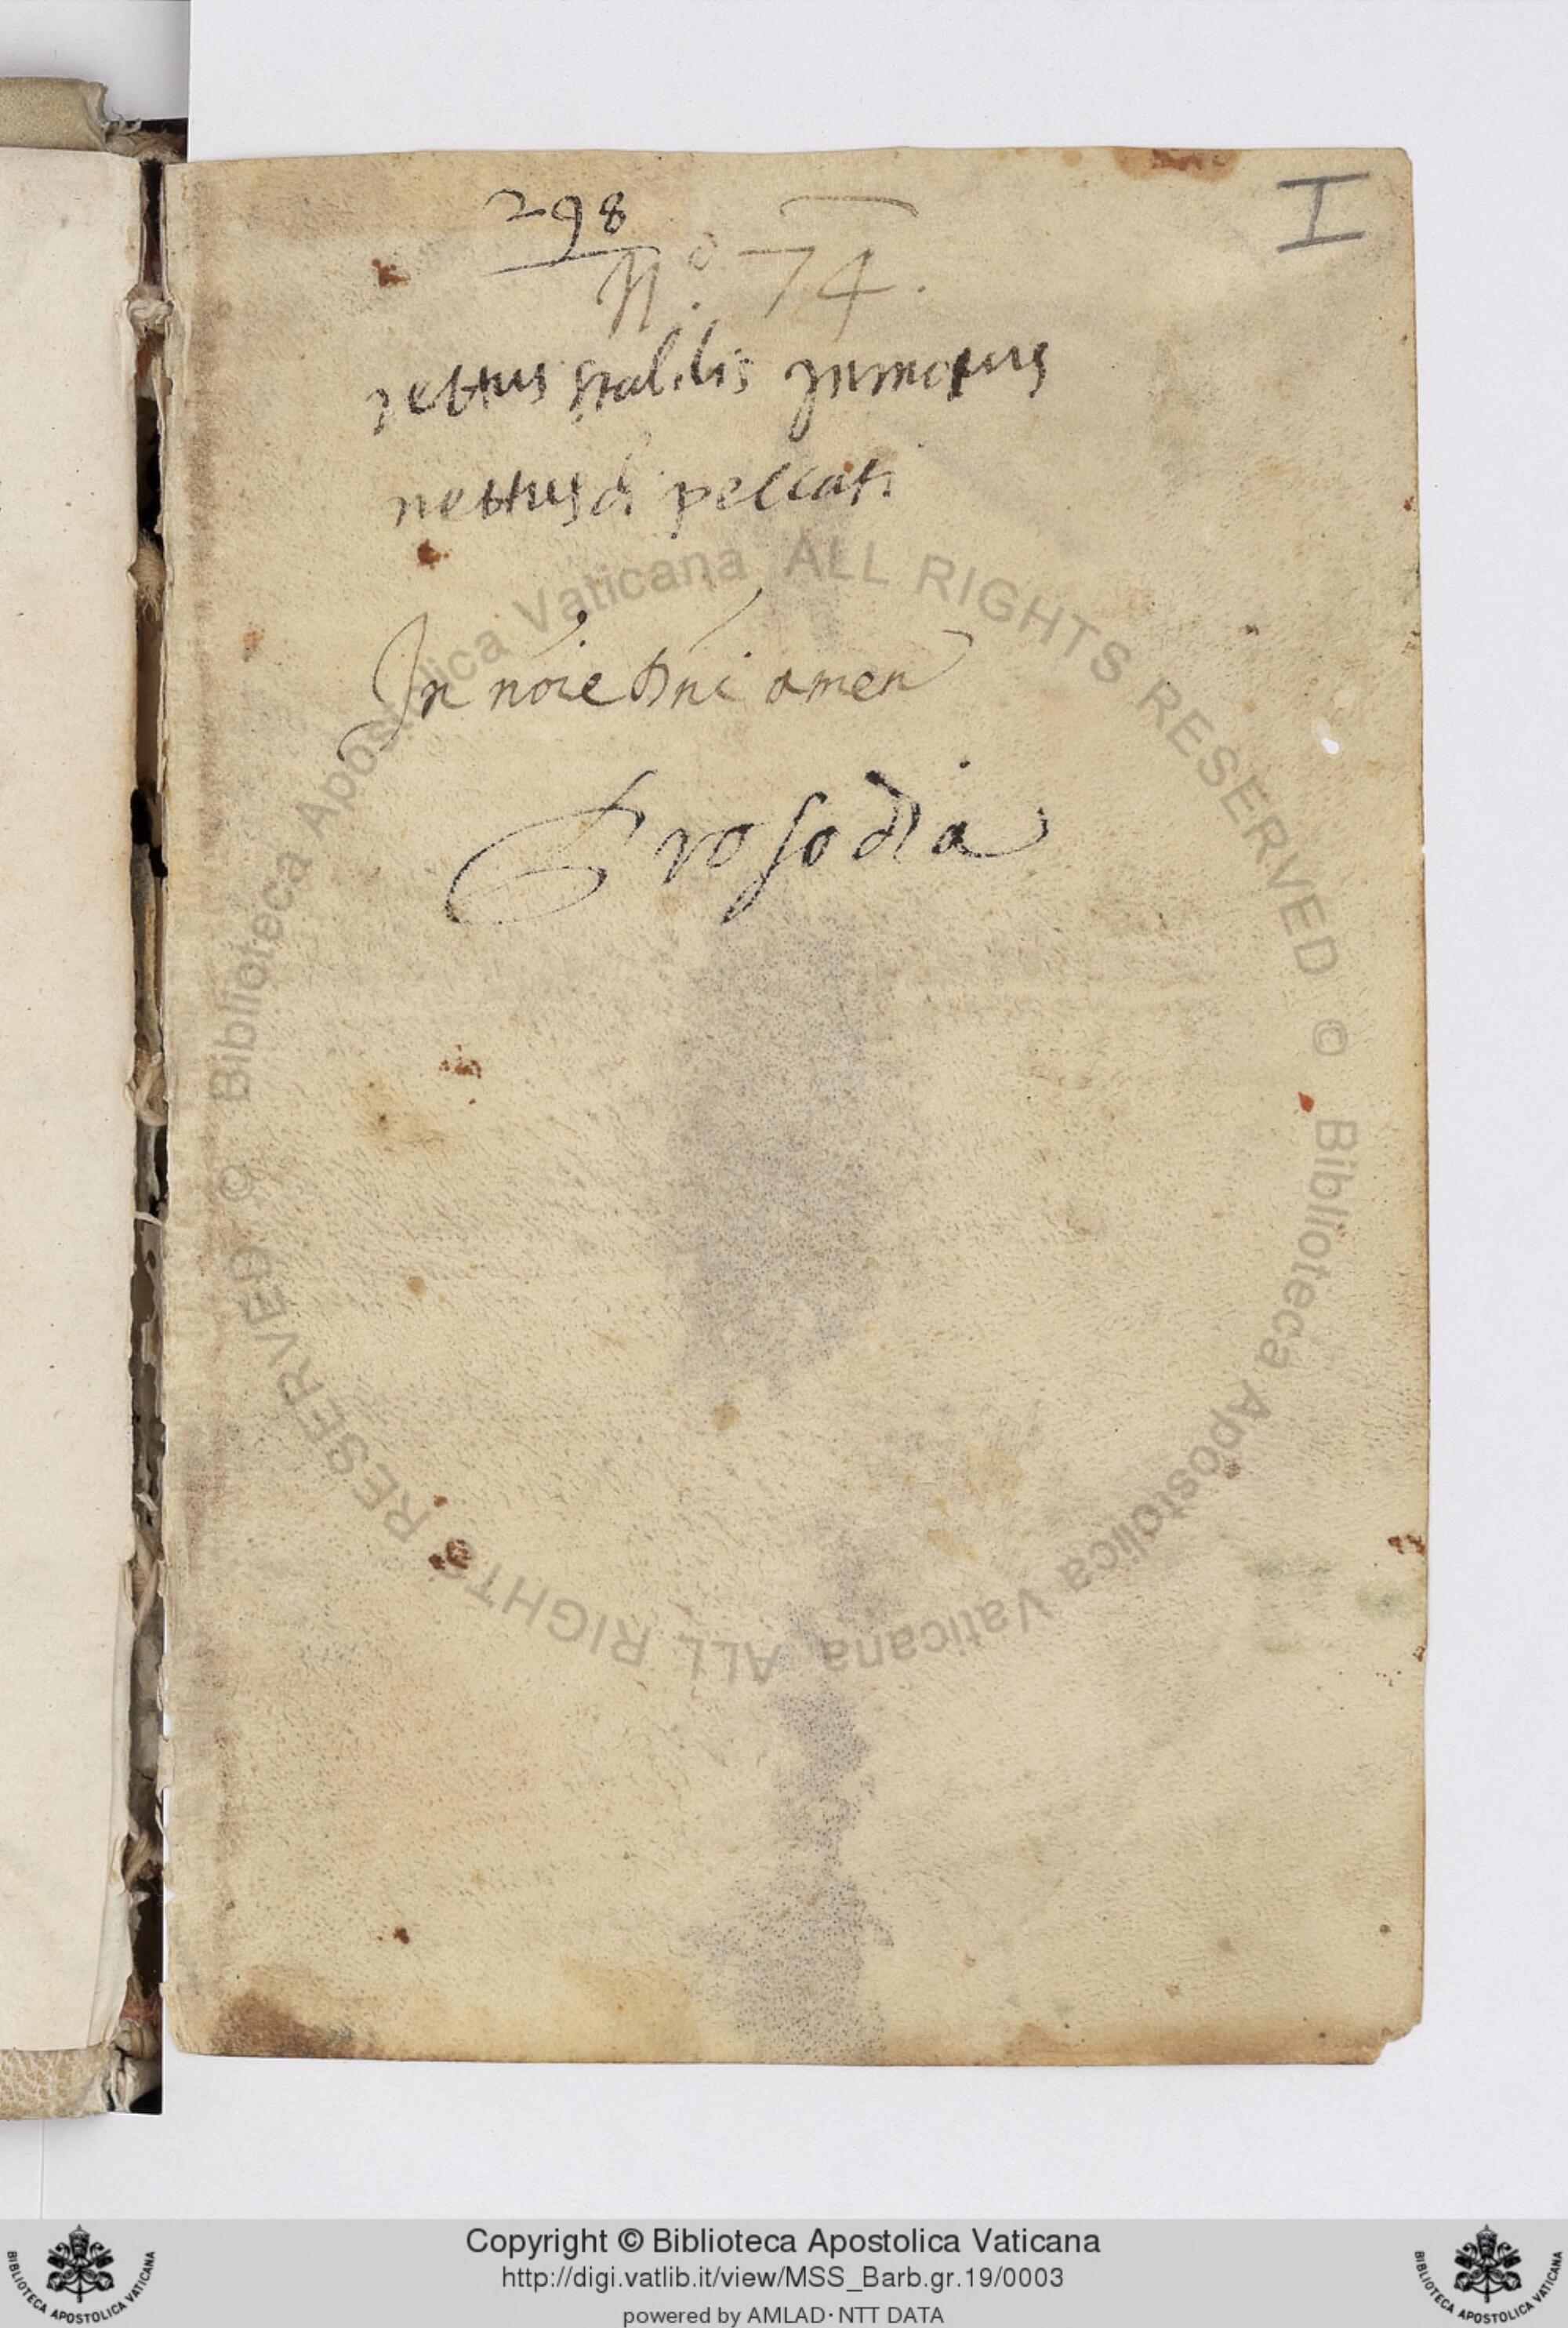 298
I
N.º 74.
stabilis inmotus
peccati
In noīe dn̄i amen
Prosodia
© Biblioteca Apostolica Vaticana ALL RIGHTS RESERVED © Biblioteca Apostolica Vaticana ALL RIGHTS RESERVED
Copyright © Biblioteca Apostolica Vaticana
http://digi.vatlib.it/view/MSS_Barb.gr.19/0003
powered by AMLAD·NTT DATA
BIBLIOTECA APOSTOLICA VATICANA
BIBLIOTECA APOSTOLICA VATICANA